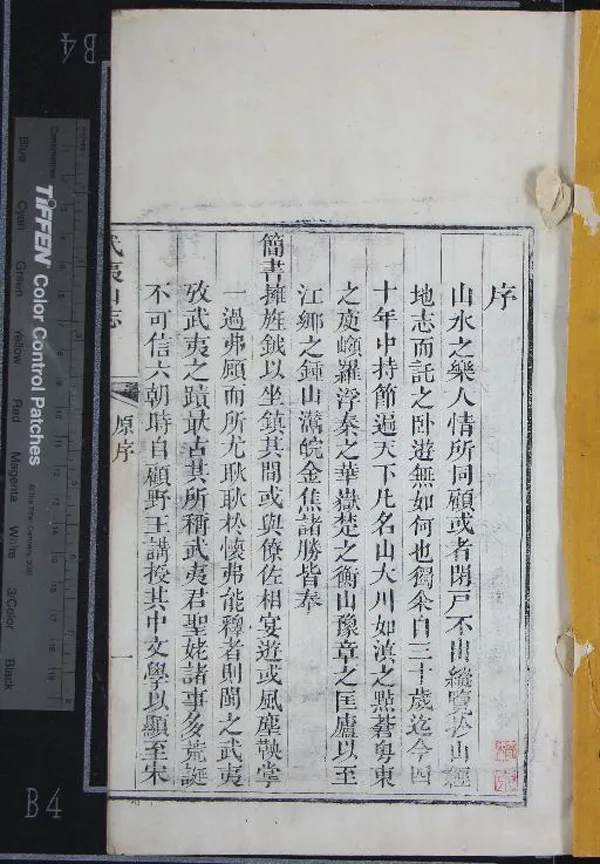 序
山水之樂人情所同顧或者閉戸不出縱覽於山經
地志而託之卧遊無如何也獨余自三十歲迄今四
十年中持節遍天下凡名山大川如滇之點蒼粤東
之庾嶺羅浮秦之華嶽楚之衡山豫章之匡廬以至
江鄉之鍾山灊皖金焦諸勝皆奉
簡書擁旌鉞以坐鎮其間或與僚佐相宴遊或風塵鞅掌
一過弗顧而所尤耿耿於懷弗能釋者則閩之武夷
攷武夷之蹟最古其所稱武夷君聖姥諸事多荒誕
不可信六朝時自顧野王講授其中文學以顯至宋
武夷山志
原序
一
B4
B4
TIFFEN Color Control Patches
Centimetres
Blue
Cyan
Green
Yellow
Red
Magenta
White
3/Color
Black